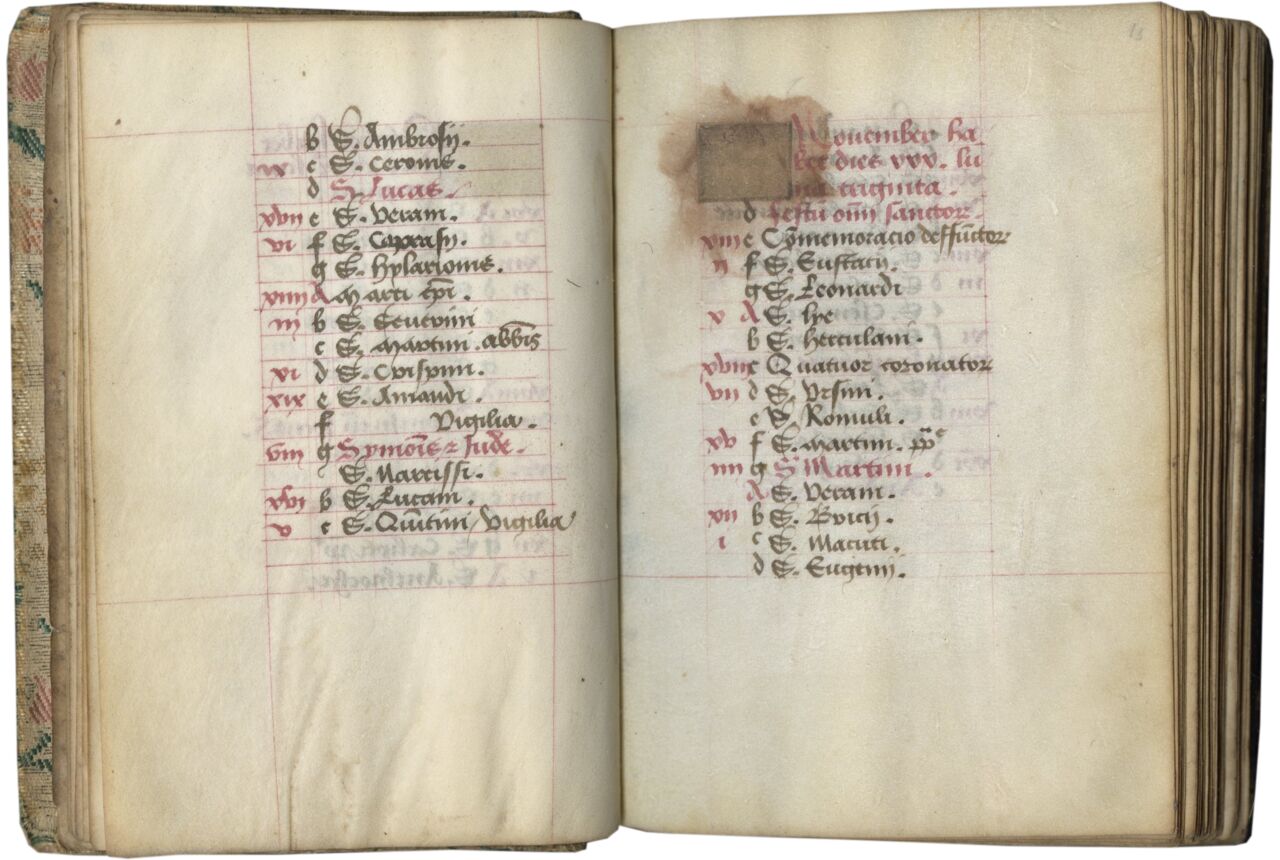 b S. Ambrosij.
ix c S. Cerone.
d S. Lucae.
xvii e S. Verani.
vi f S. Caprasij.
g S. hylarione.
xiiii A Marci epi.
iii b S. Severini
c S. Martini. abbis
xi d S. Crispini.
xix e S. Amandi.
f Vigilia.
viii g Symonis & Jude.
S. Narcissi.
xvi b S. Lucani.
v c S. Quintini / Vigilia
November ha
bet dies xxx. lu
na triginta.
d festu omi sanctor
xiii e Comemoracio deffunctor
ii f S. Eustacij.
g S. Leonardi
x A S. lye
b S. herculani.
xviii c Quatuor coronator
vii d S. Ursini.
e S. Romuli.
xv f S. Martini. pp
iiii g S Martini.
A S. Verani.
xii b S. Bricij.
i c S. Macuti.
d S. Eugenij.